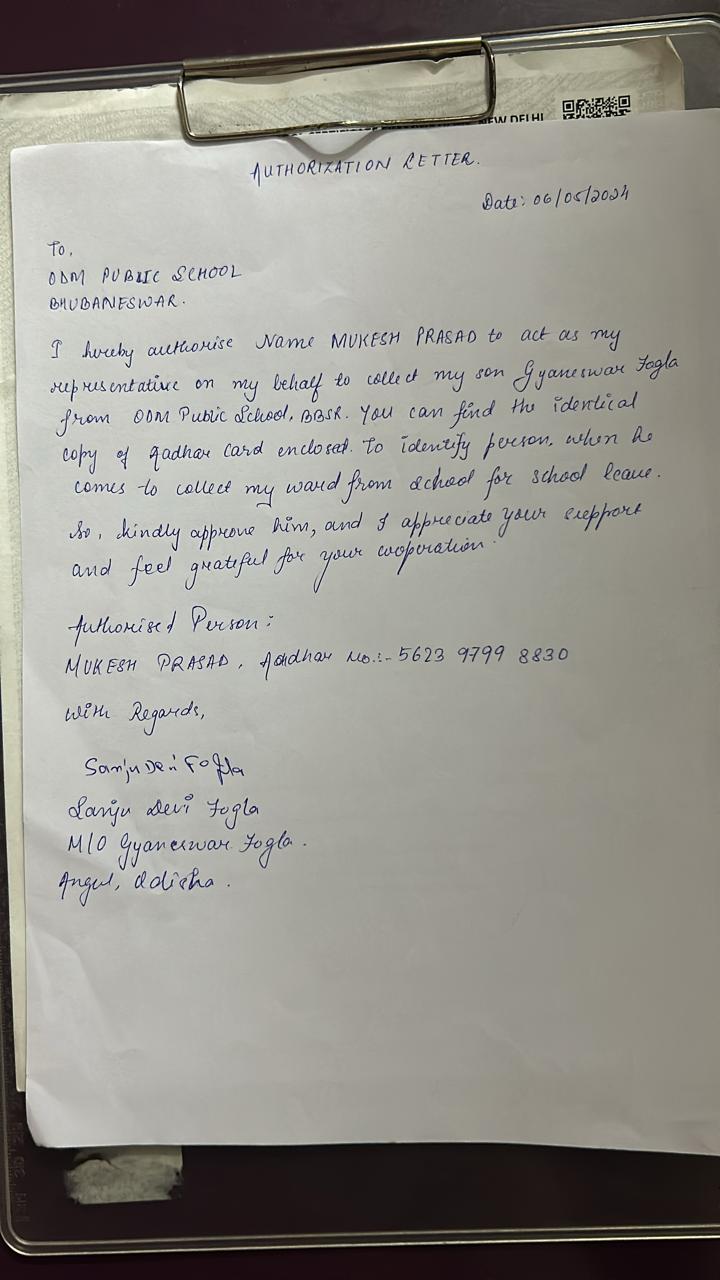 NEW DELHI
AUTHORIZATION LETTER.
Date: 06/05/2024
To,
ODM PUBLIC SCHOOL
BHUBANESWAR.
I hereby authorise Name MUKESH PRASAD to act as my
representative on my behalf to collect my son Gyaneswar Fogla
from ODM Public School, BBSR. You can find the identical
copy of aadhar card enclosed. To identify person, when he
comes to collect my ward from school for school leave.
So, kindly approve him, and I appreciate your support
and feel grateful for your cooperation.
Authorised Person:
MUKESH PRASAD, Aadhar No.:- 5623 9799 8830
With Regards,
Sanju Devi Fogla
Sanju Devi Fogla
M/O Gyaneswar Fogla.
Angul, Odisha.